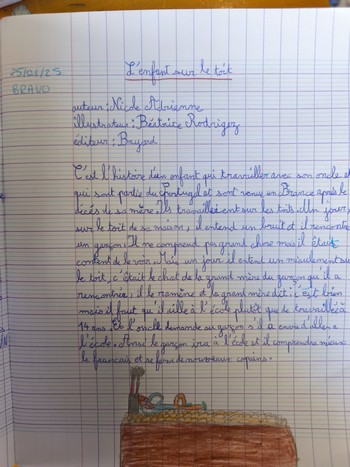 L'enfant sur le toit
25/01/25
BRAVO
auteur : Nicole Adrienne
illustrateur : Béatrice Rodriguez
éditeur : Bayard
C'est l'histoire d'un enfant qui travailler avec son oncle et
qui sont partie du Portugal et sont venu en France après le
décès de sa mère. Ils travailleient sur les toits. Un jour,
sur le toit de sa maison, il entend un bruit et il rencontre
un garçon. Il ne comprend pas grand chose mais il était
content de le voir. Mais un jour il entent un miaulement sur
le toit, c'était le chat de la grand mère du garçon qu'il a
rencontrée, il le ramène et la grand mère dit : C'est bien
mais il faut qu'il aille à l'école plutôt que de travailler à
14 ans. Et l'oncle demande au garçon s'il a envie d'aller a
l'école. Ainsi le garçon ira a l'école et il comprendra mieux
le français et se fera de nouveaux copains.